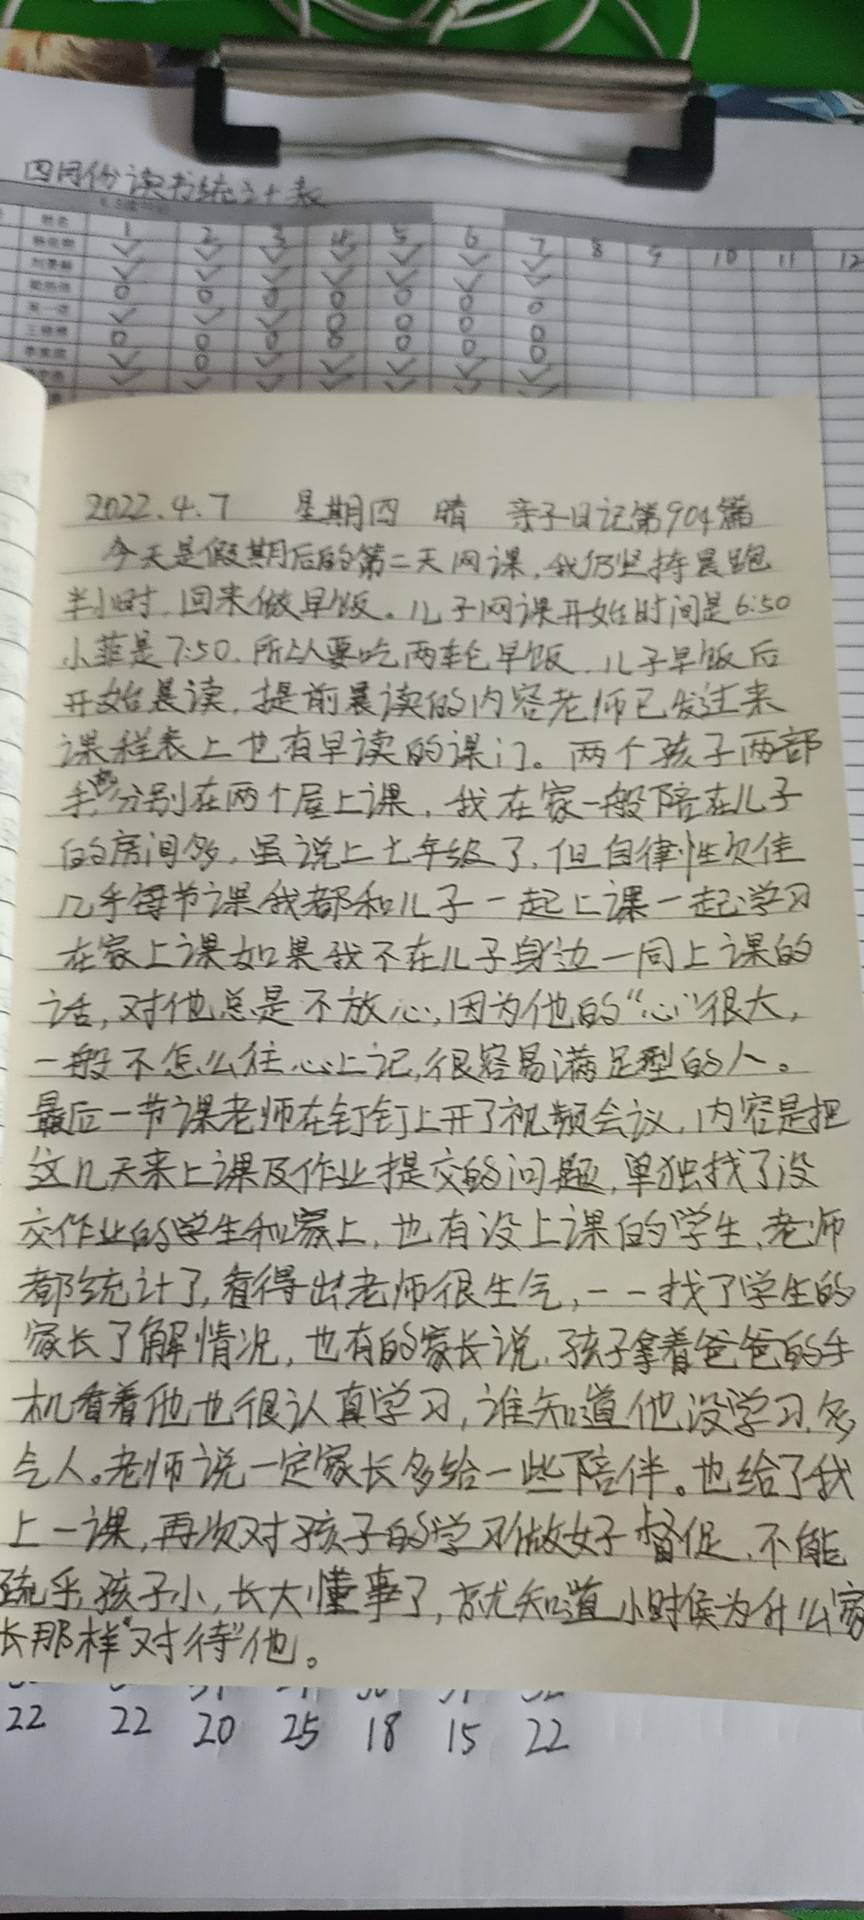 四月份读书统计表
姓名 1 2 3 4 5 6 7 8 9 10 11 12
2022.4.7 星期四 晴 亲子日记第904篇
今天是假期后的第二天网课,我仍坚持晨跑
半小时,回来做早饭。儿子网课开始时间是6:50
小菲是7:50.所以要吃两轮早饭.儿子早饭后
开始晨读,提前晨读的内容老师已发过来
课程表上也有早读的课门。两个孩子两部
手机分别在两个屋上课,我在家一般陪在儿子
的房间多,虽说上七年级了,但自律性欠佳
几乎每节课我都和儿子一起上课一起学习
在家上课如果我不在儿子身边一同上课的
话,对他总是不放心,因为他的“心”很大,
一般不怎么往心上记,很容易满足型的人。
最后一节课老师在钉钉上开了视频会议,内容是把
这几天来上课及作业提交的问题,单独找了没
交作业的学生和家上,也有没上课的学生,老师
都统计了,看得出老师很生气,一一找了学生的
家长了解情况,也有的家长说,孩子拿着爸爸的手
机看着他也很认真学习,谁知道他没学习,多
气人。老师说一定家长多给一些陪伴。也给了我
上一课,再次对孩子的学习做好督促,不能
疏乎,孩子小,长大懂事了,就知道小时候为什么家
长那样“对待”他。
22 22 20 25 18 15 22